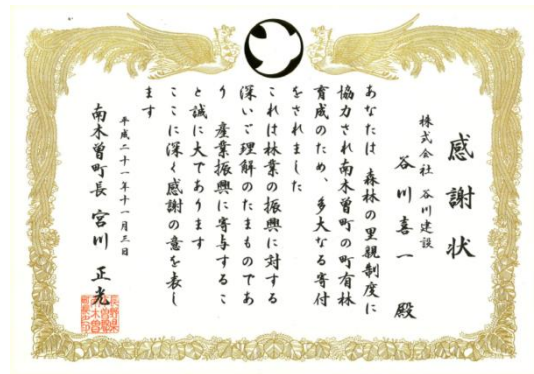 感謝状
株式会社 谷川建設
谷川喜一 殿
あなたは 森林の里親制度に
協力され南木曽町の町有林
育成のため、多大なる寄付
をされました
これは林業の振興に対する
深いご理解のたまものであ
り 産業振興に寄与するこ
と誠に大であります
ここに深く感謝の意を表し
ます
平成二十一年十一月三日
南木曽町長 宮川 正光